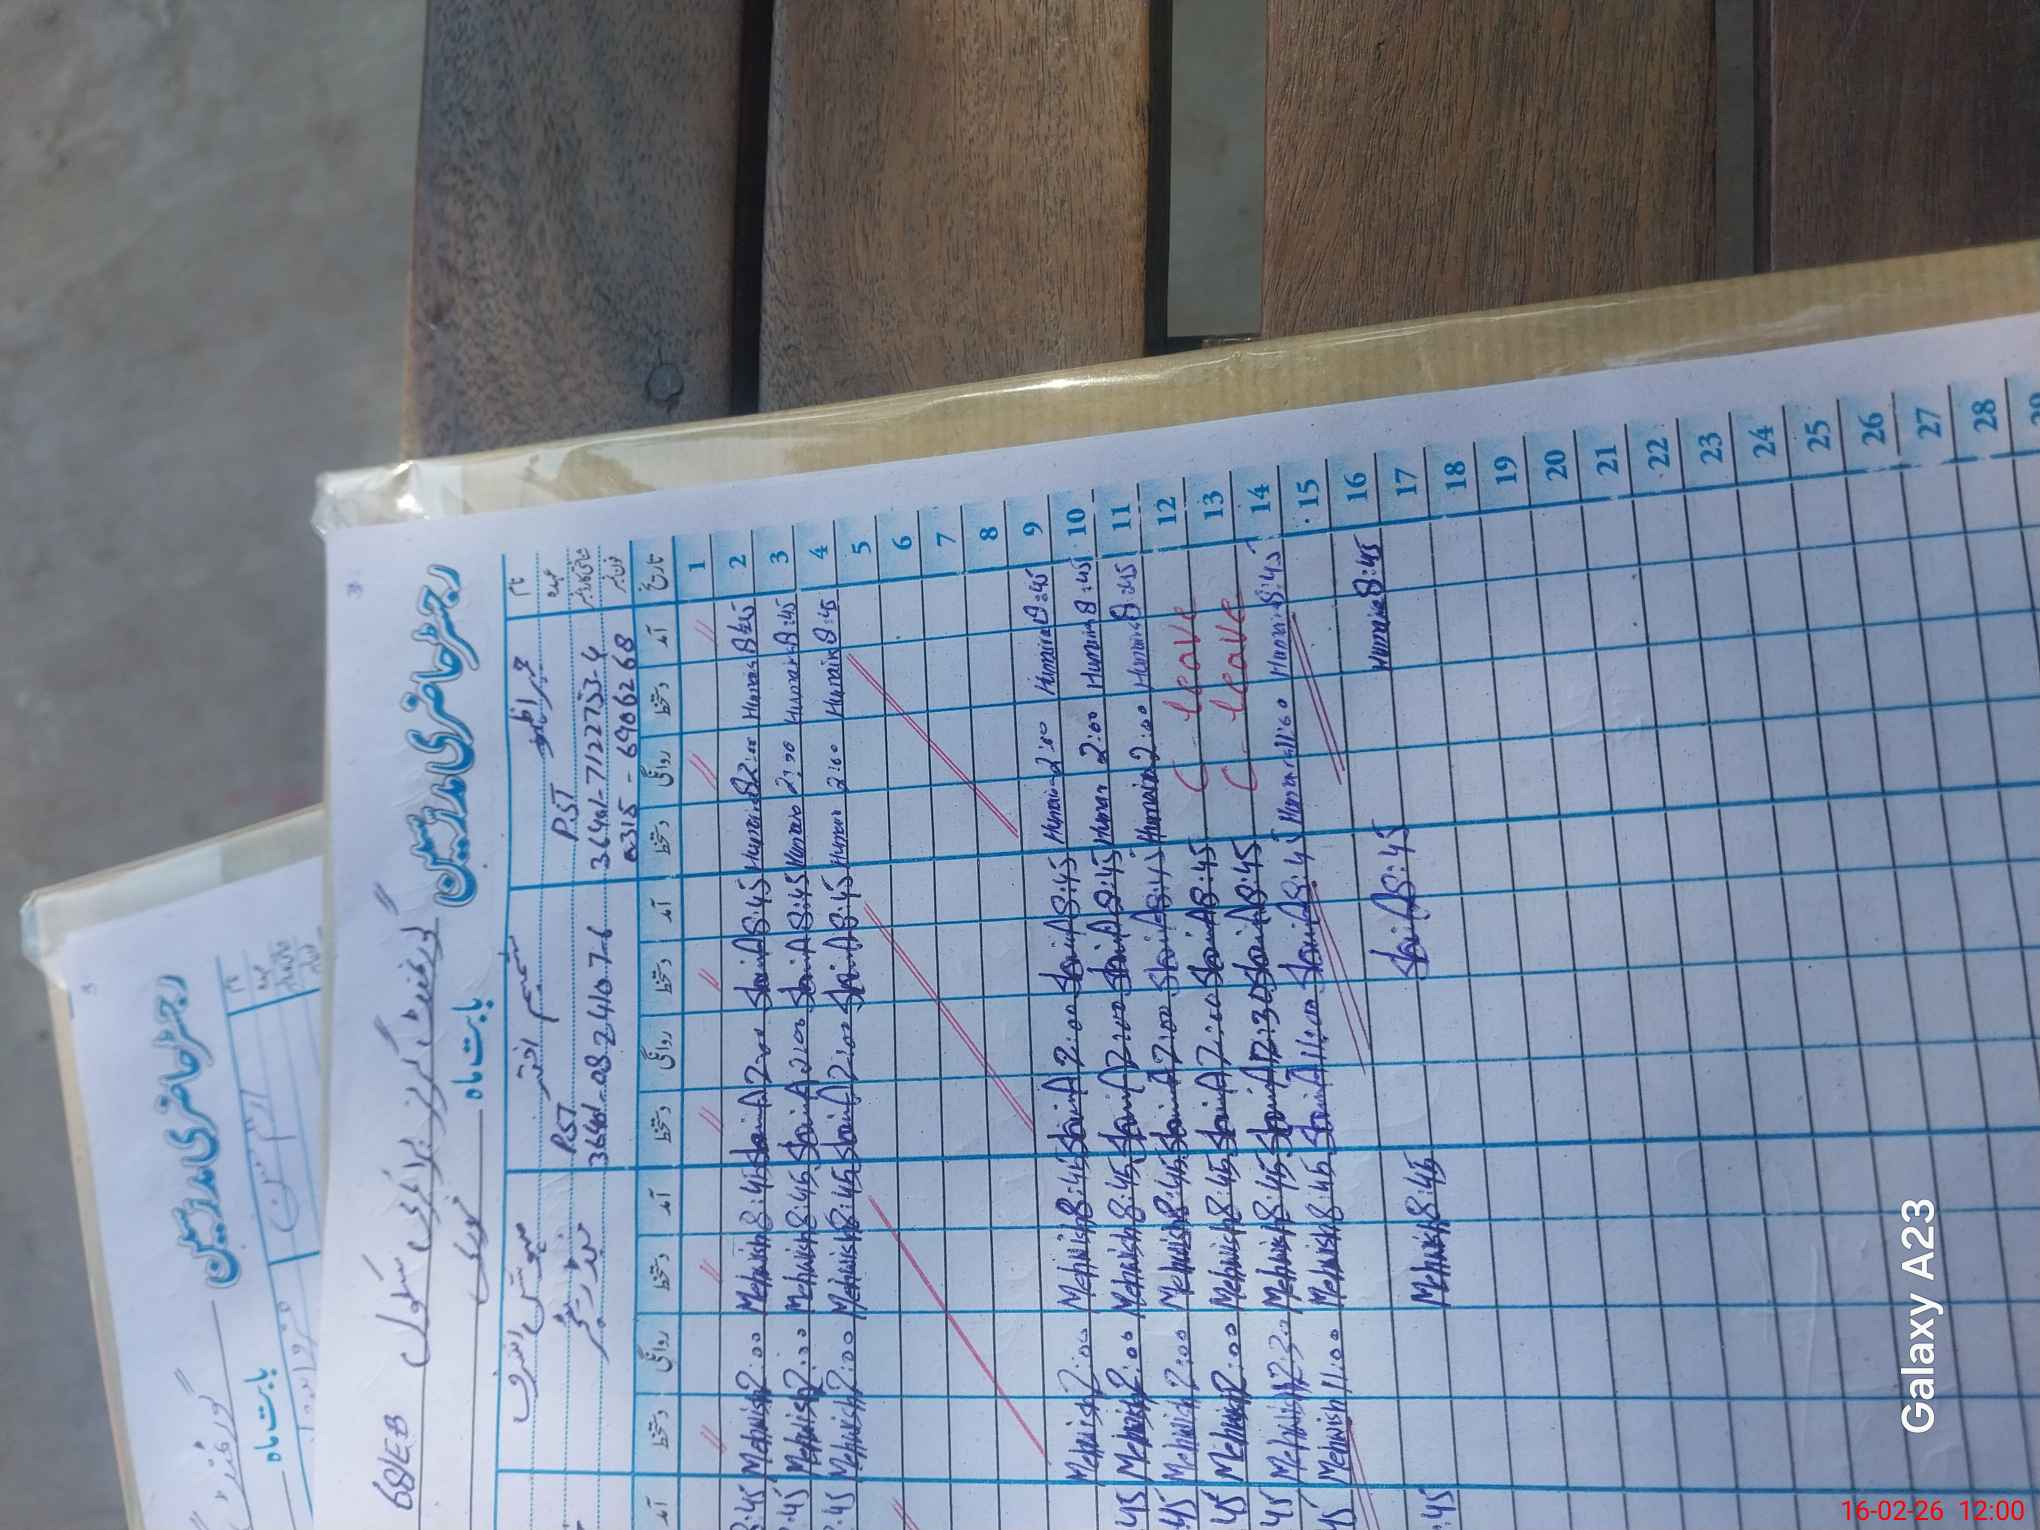 68/EB گورنمنٹ گرلز پرائمری سکول
رجسٹر حاضری مدرسین
بابت ماہ
نام
عہدہ
شناختی کارڈ نمبر
فون نمبر
شمیم اختر
PST
PST
0315-6906268
تاریخ آمد دستخط روانگی دستخط آمد دستخط روانگی دستخط آمد دستخط روانگی دستخط آمد
1
2 Humaira 8:45 Humaira 2:00 ShamimA 8:45 ShamimA 2:00 Mehwish 8:45 Mehwish 2:00
3 Humaira 8:45 Humaira 2:00 ShamimA 8:45 ShamimA 2:00 Mehwish 8:45 Mehwish 2:00
4 Humaira 8:45 Humaira 2:00 ShamimA 8:45 ShamimA 2:00 Mehwish 8:45 Mehwish 2:00
5
6
7
8
9 Humaira 8:45 Humaira 2:00 ShamimA 8:45 ShamimA 2:00 Mehwish 8:45 Mehwish 2:00
10 Humaira 8:45 Humaira 2:00 ShamimA 8:45 ShamimA 2:00 Mehwish 8:45 Mehwish 2:00
11 Humaira 8:45 Humaira 2:00 ShamimA 8:45 ShamimA 2:00 Mehwish 8:45 Mehwish 2:00
12 C - leave ShamimA 8:45 ShamimA 2:00 Mehwish 8:45 Mehwish 2:00
13 C - leave ShamimA 8:45 ShamimA 2:30 Mehwish 8:45 Mehwish 2:30
14 Humaira 8:45 Humaira 11:00 ShamimA 8:45 ShamimA 11:00 Mehwish 8:45 Mehwish 11:00
15
16 Humaira 8:45 ShamimA 8:45 Mehwish 8:45
17
18
19
20
21
22
23
24
25
26
27
28
29
رجسٹر حاضری مدرسین
بابت ماہ
Galaxy A23
16-02-26 12:00